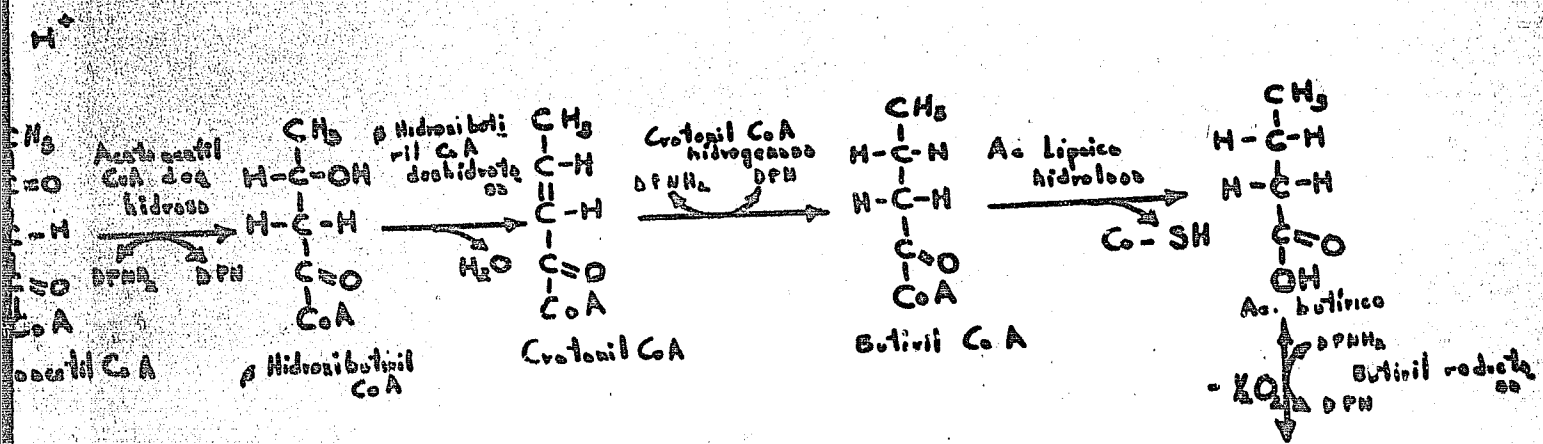 H+
CH3
C=O
C-H
C=O
CoA
Acetoacetil
CoA des
hidrasa
DPNH2 DPN
CH3
H-C-OH
H-C-H
C=O
CoA
β Hidroxibutiril
CoA
β Hidroxibuti
ril CoA
deshidrata
sa
H2O
CH3
C-H
C-H
C=O
CoA
Crotonil CoA
Crotonil CoA
hidrogenasa
DPNH2 DPN
CH3
H-C-H
H-C-H
C=O
CoA
Butiril CoA
Ac Lipoico
hidrolasa
Co-SH
CH3
H-C-H
H-C-H
C=O
OH
Ac. butírico
DPNH2
Butiril reducta
sa
DPN